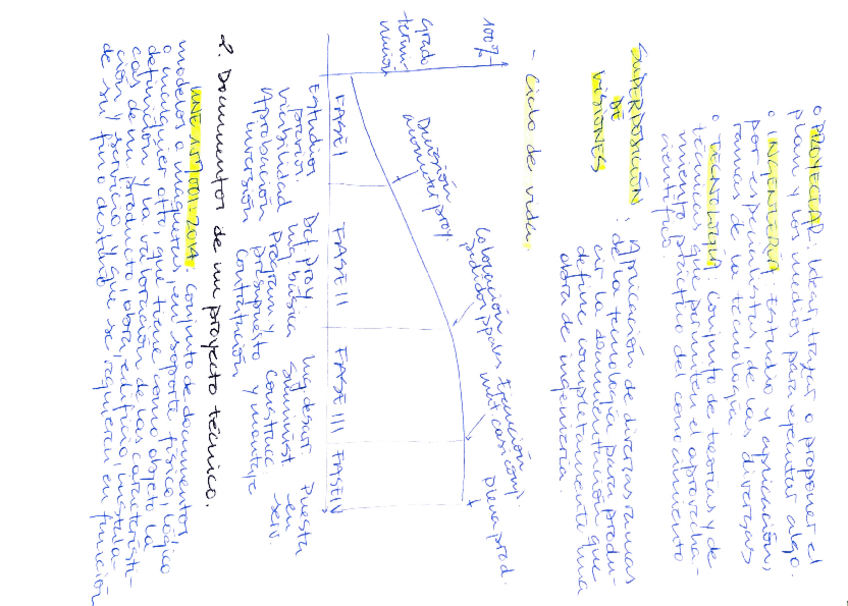 o PROYECTAR: Idear, trazar o proponer el
plan y los medios para ejecutar algo.
o INGENIERÍA: Estudio y aplicación,
por especialistas, de las diversas
ramas de la tecnología.
o TECNOLOGÍA: Conjunto de teorías y de
técnicas que permiten el aprovecha-
miento práctico del conocimiento
científico.
SUPERPOSICIÓN
DE
VISIONES
: Aplicación de diversas ramas
de la tecnología para produ-
cir la documentación que
define completamente una
obra de ingeniería.
- Ciclo de vida.
100%
Grado
termi
nación
Decisión
acometer proy
Colocación
pedidos ppales
Plena prod.
FASE I
FASE II
FASE III
FASE IV
Estudios
previos.
viabilidad
Aprobación
inversión
Def. proy
Ing básica
Program y
presupuesto
Contratación
Ing desar.
Suminist.
Construcc
y montaje
Puesta
en
serv.
2. Documentos de un proyecto técnico.
UNE 157001:2014 Conjunto de documentos,
modelos o maquetas, en soporte físico, lógico
o cualquier otro, que tiene como objeto la
definición y la valoración de las característi-
cas de un producto, obra, edificio, instala-
ción, servicio, y que se requieren en función
de su fin o destino